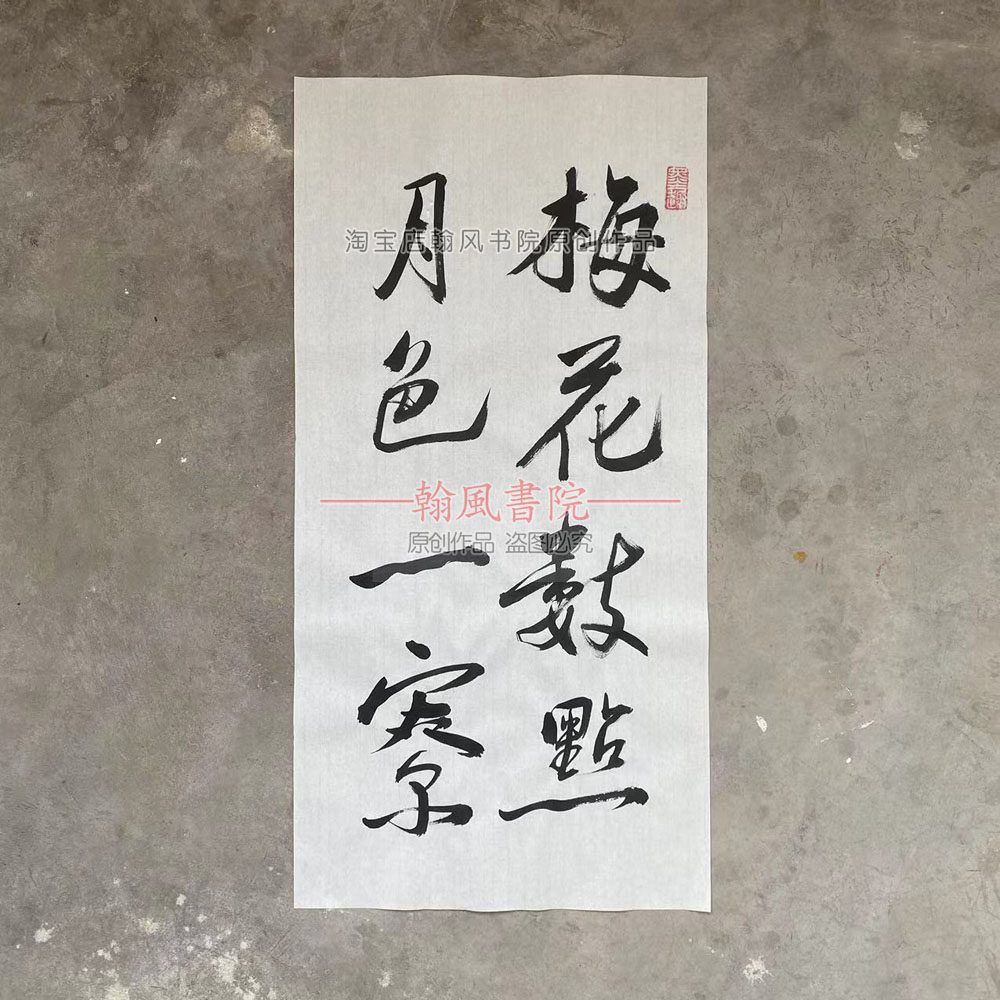 梅花數點
月色一寮
淘宝店翰风书院原创作品
翰風書院
原创作品 盗图必究